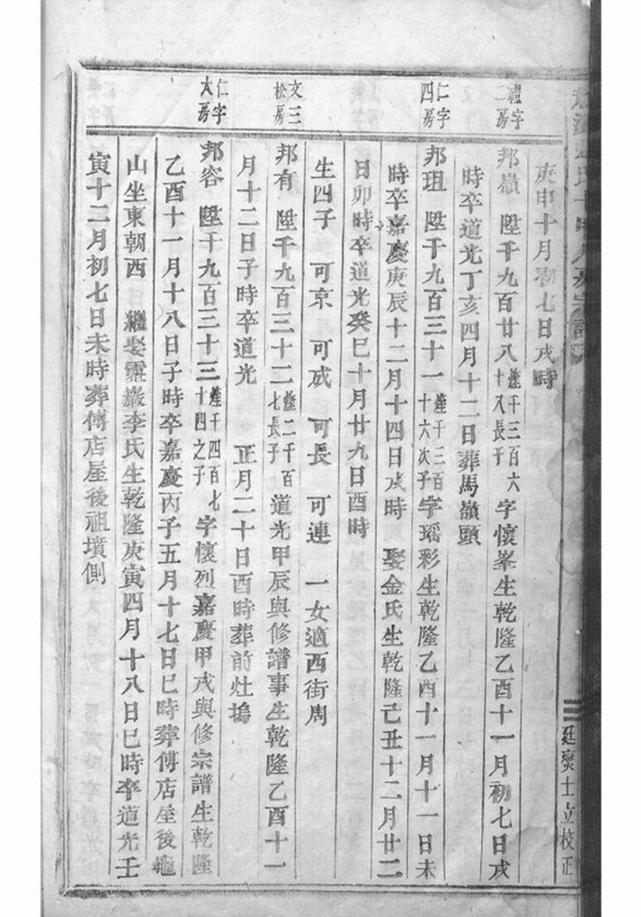 庚申十月初七日戌時
禮字二房
邦嶺 陞千九百廿八 煌千三百六十八長子 字懷峯生乾隆乙酉十一月初七日戌
時卒道光丁亥四月十二日葬馬嶺頭
仁字四房
邦珇 陞千九百三十一 煌千三百十六次子 字瑶彩生乾隆乙酉十一月十一日未
時卒嘉慶庚辰十二月十四日戌時 娶金氏生乾隆己丑十二月廿二
日卯時卒道光癸巳十月廿九日酉時
生四子 可京 可成 可長 可連 一女適西街周
文三松房
邦有 陞千九百三十二 煌二千百七長子 道光甲辰與修譜事生乾隆乙酉十一
月十二日子時卒道光 正月二十日酉時葬前灶塢
仁字大房
邦容 陞千九百三十三 煌千四百七十四之子 字懷烈嘉慶甲戌與修宗譜生乾隆
乙酉十一月十八日子時卒嘉慶丙子五月十七日巳時葬傅店屋後龜
山坐東朝西 繼娶靈巖李氏生乾隆庚寅四月十八日巳時卒道光壬
寅十二月初七日未時葬傅店屋後祖墳側
三 廷爕士立校正